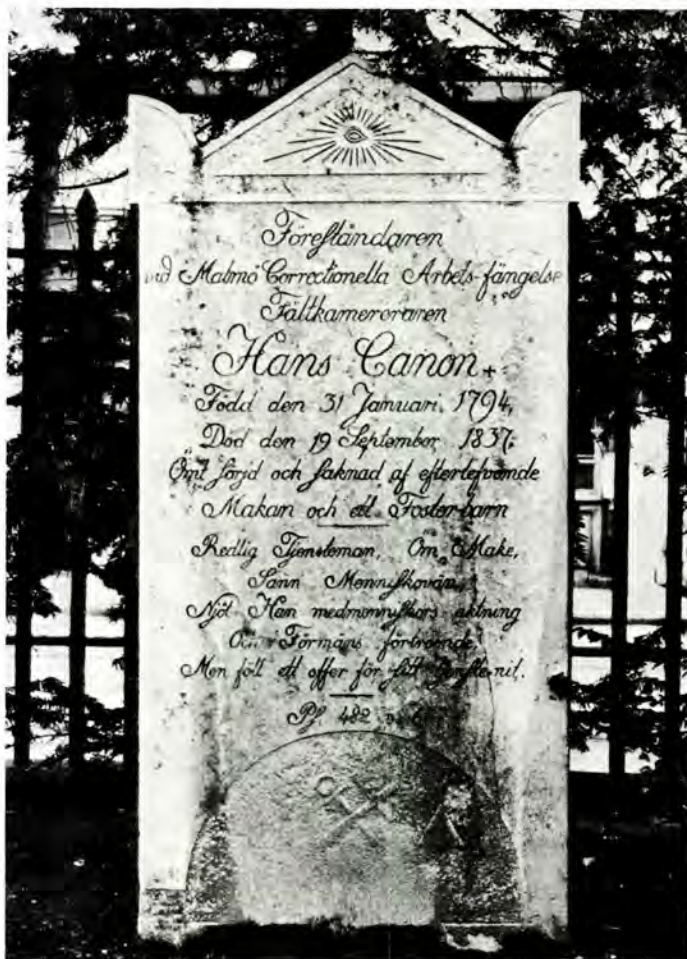 Föreståndaren
vid Malmö Correctionella Arbets-fängelse
Fältkameroraren
Hans Canon.
Född den 31 Januari, 1794,
Död den 19 September, 1837;
Ömt sörjd och saknad af efterlefvande
Makan och ett Fosterbarn
Redlig Tjensteman, Öm Make,
Sann Menniskovän,
Njöt Han medmenniskors aktning
Och Förmäns förtroende,
Men föll ett offer för sitt tjenste-nit.
Ps. 482